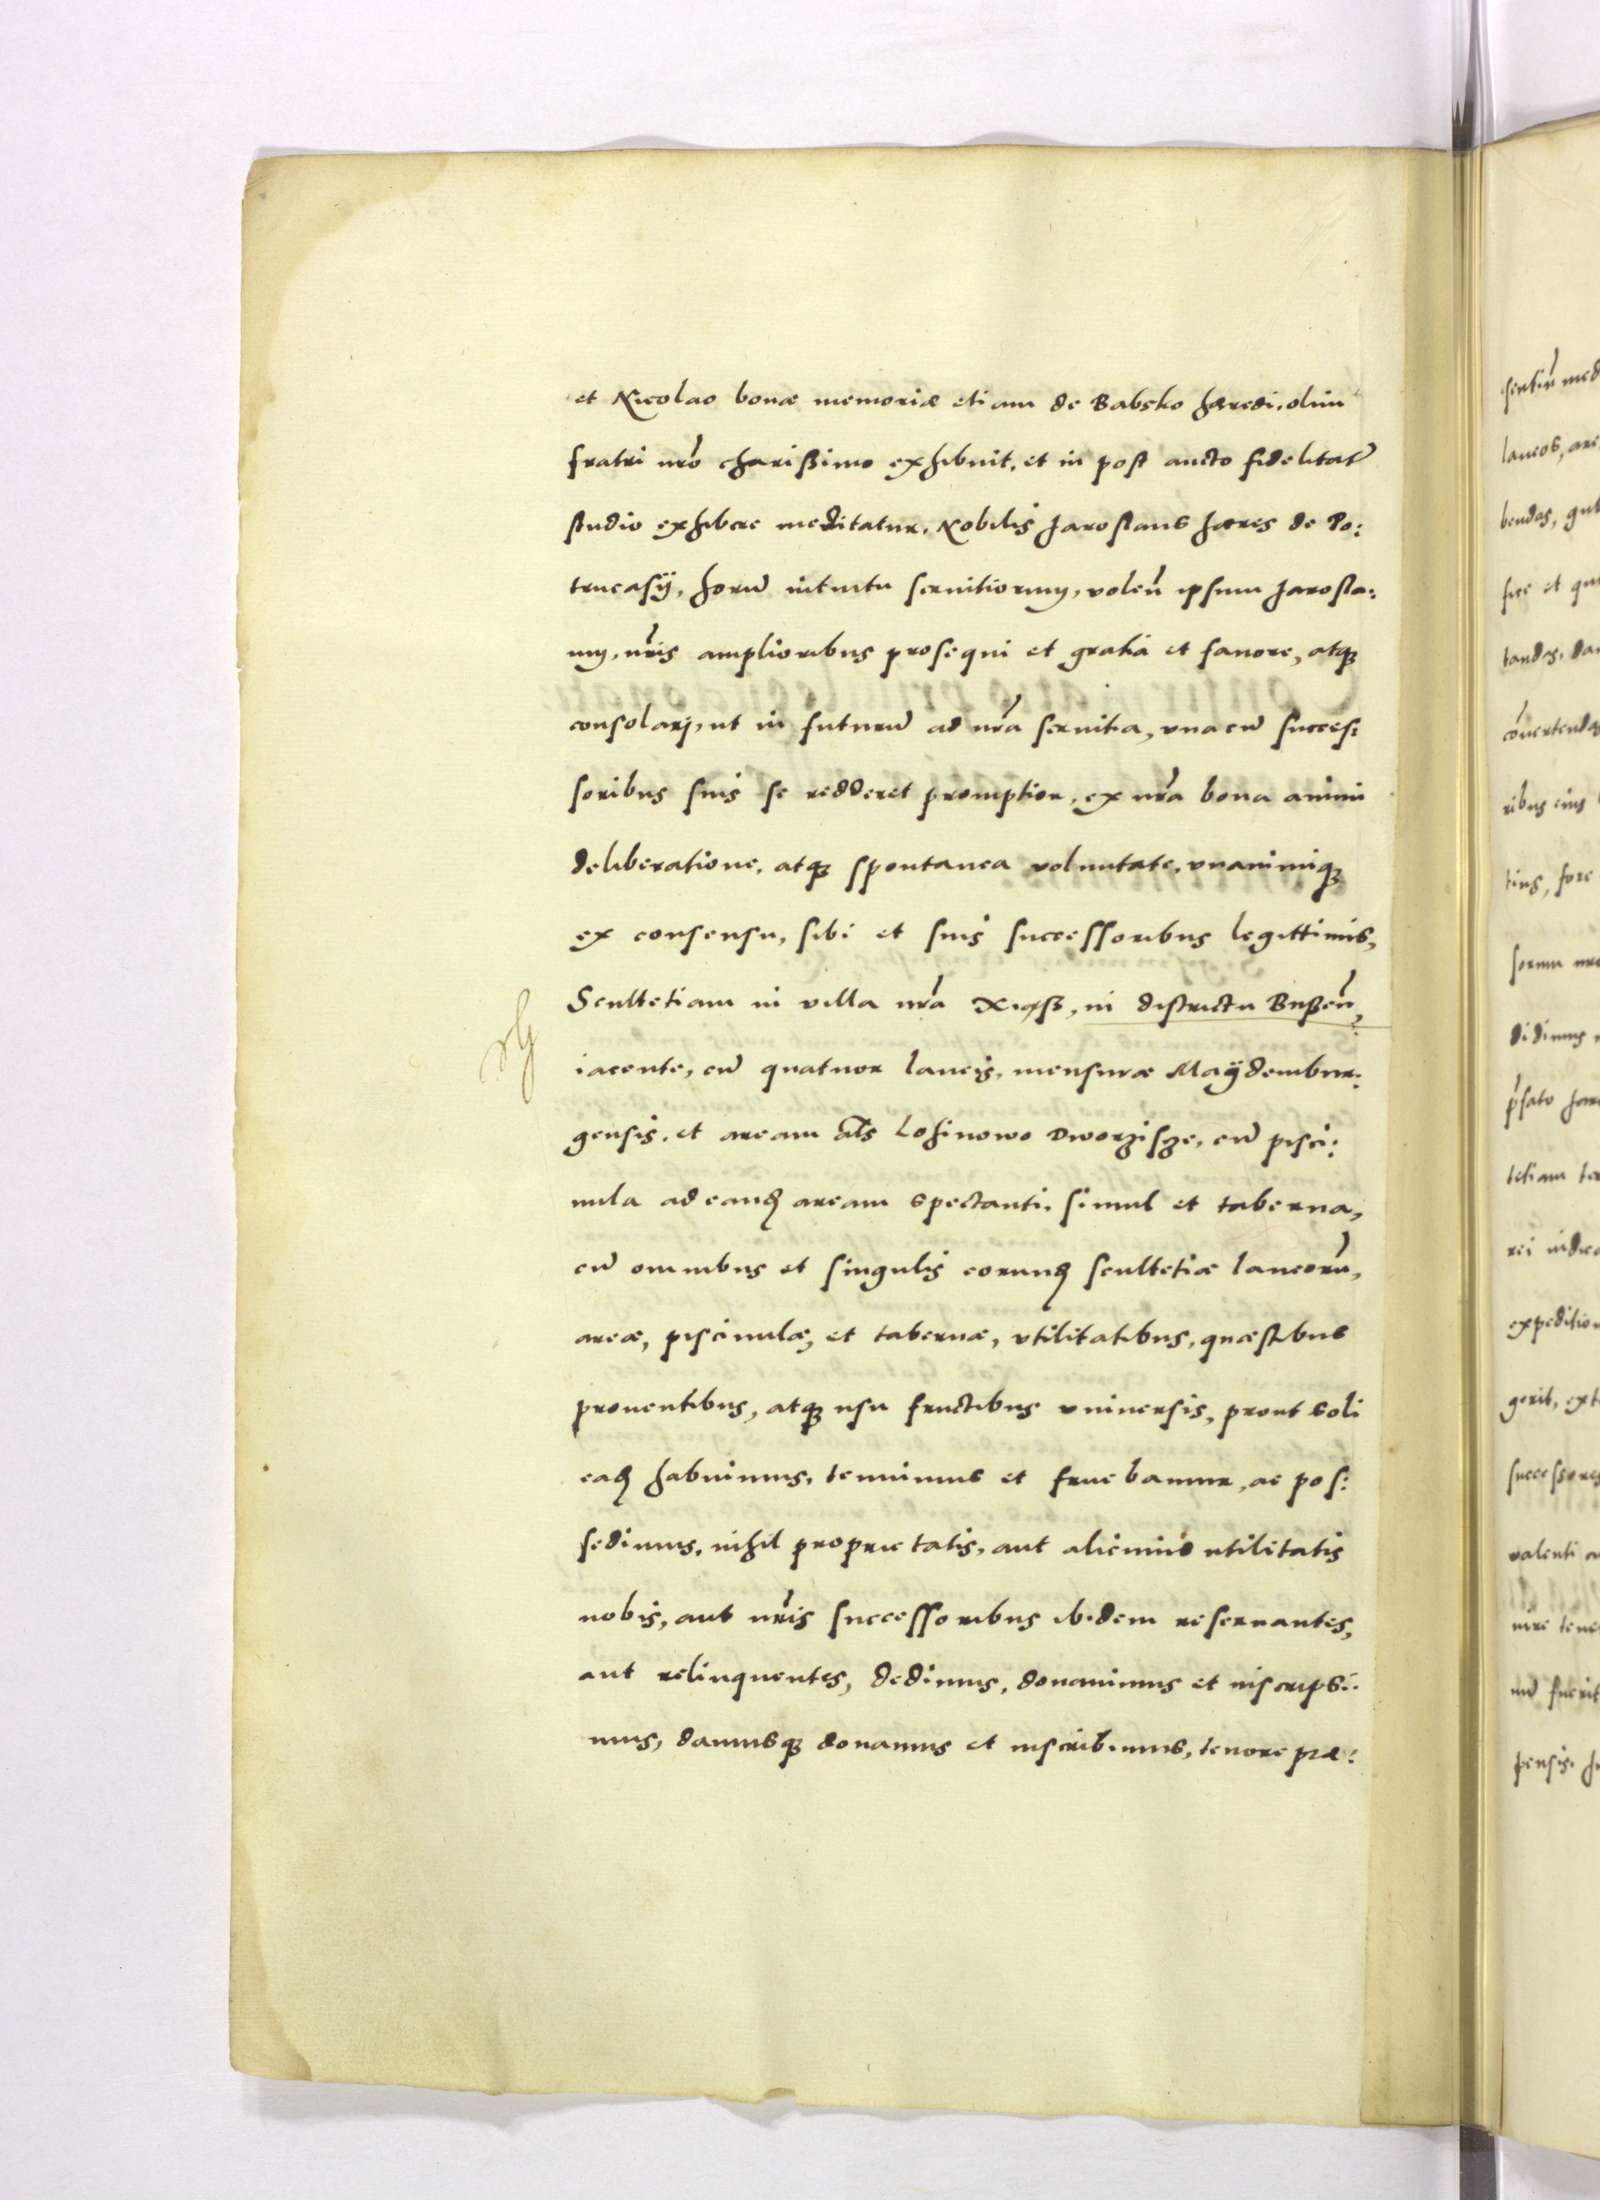 et Nicolao bonæ memoriæ etiam de Babsko hæredi, olim
fratri nrō charißimo exhibuit, et in post aucto fidelitatꝭ
studio exhibere meditatur. Nobilis Jarostaus hæres de Po:
trucasÿ, horū intuitu seruitiorum, volen̄ ipsum Jarosta:
um, nr̄is amplioribus prosequi et gratia et fauore, atqꝫ
consolarj, ut in futurū ad nr̄a seruitia, vna cū succes:
soribus suis se redderet promptior, ex nr̄a bona animi
deliberatione, atqꝫ spontanea voluntate, vnanimiqꝫ
ex consensu, sibi et suis successoribus legittimis,
Scultetiam in villa nr̄a Xiąß, in districtu Bußen̄,
iacente, cū quatuor laneis, mensuræ Maÿdembur:
gensis, et aream al̄s Lohinowo Dworzisze, cū pisci:
nula ad eandꝫ aream spectanti, simul et taberna,
cū omnibus et singulis eorundꝫ scultetiæ laneorū,
areæ, piscinulæ, et tabernæ, vtilitatibus, quæstibus
prouentibus, atqꝫ usu fructibus vniuersis, prout soli
eadꝫ habuimus, tenuimus et fruebamur, ac pos:
sedimus, nihil proprietatis, aut alicuius utilitatis
nobis, aut nr̄is successoribus ibidem reseruantes,
aut relinquentes, dedimus, donauimus et inscripsi:
mus, damusqꝫ donamus et inscribimus, tenore præ: